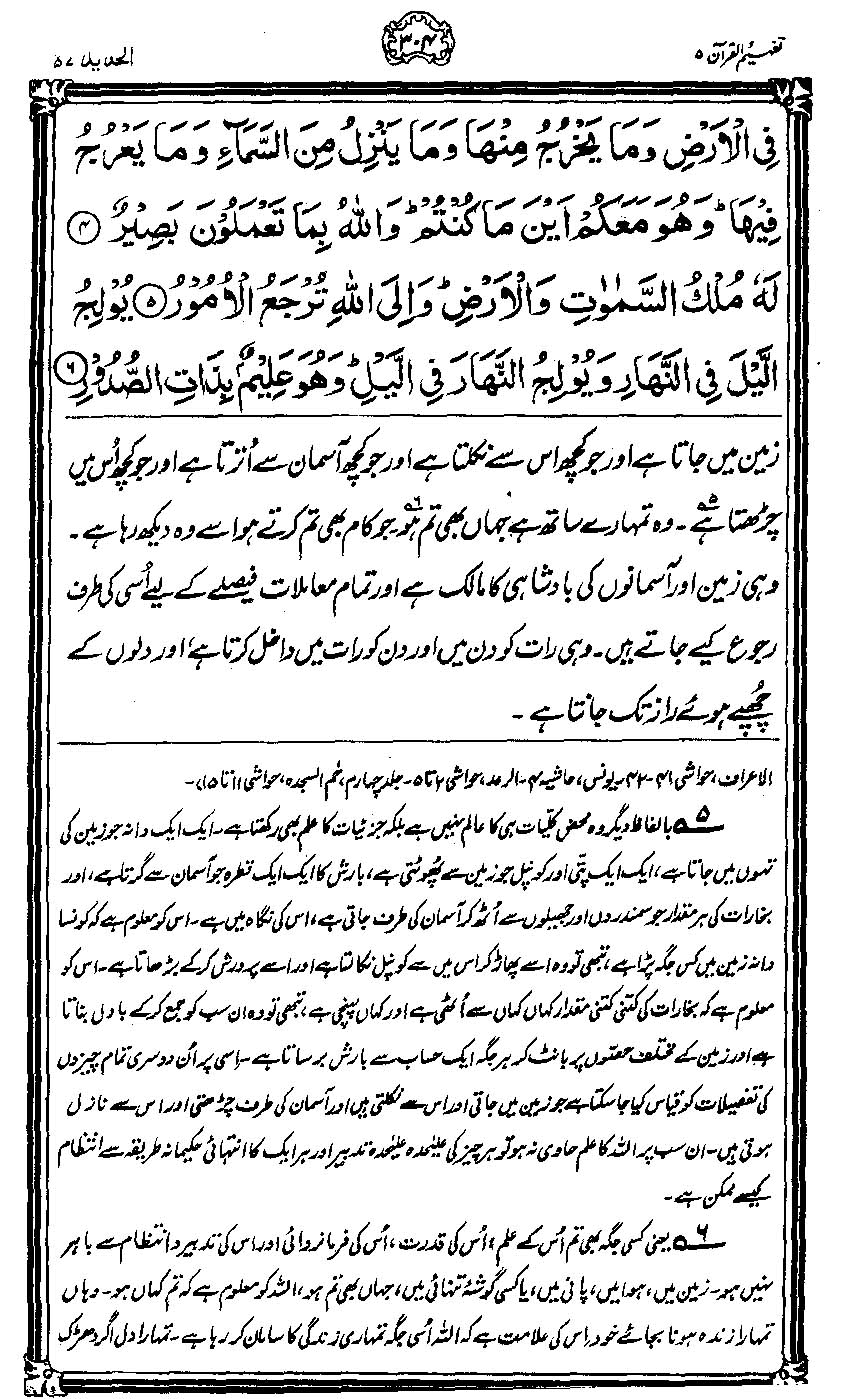 تفہیم القرآن ۵
۳۰۴
الحدید ۵۷
فِی الْاَرْضِ وَمَا یَخْرُجُ مِنْهَا وَمَا یَنْزِلُ مِنَ السَّمَآءِ وَمَا یَعْرُجُ
فِیْهَا ؕ وَهُوَ مَعَکُمْ اَیْنَ مَا کُنْتُمْ ؕ وَاللهُ بِمَا تَعْمَلُوْنَ بَصِیْرٌ ﴿۴﴾
لَهٗ مُلْکُ السَّمٰوٰتِ وَالْاَرْضِ ؕ وَاِلَی اللهِ تُرْجَعُ الْاُمُوْرُ ﴿۵﴾ یُوْلِجُ
الَّیْلَ فِی النَّهَارِ وَیُوْلِجُ النَّهَارَ فِی الَّیْلِ ؕ وَهُوَ عَلِیْمٌۢ بِذَاتِ الصُّدُوْرِ ﴿۶﴾
زمین میں جاتا ہے اور جو کچھ اس سے نکلتا ہے اور جو کچھ آسمان سے اُترتا ہے اور جو کچھ اُس میں
چڑھتا ہے۵۔ وہ تمہارے ساتھ ہے جہاں بھی تم ہو۶۔ جو کام بھی تم کرتے ہو اسے وہ دیکھ رہا ہے۔
وہی زمین اور آسمانوں کی بادشاہی کا مالک ہے اور تمام معاملات فیصلے کے لیے اُسی کی طرف
رجوع کیے جاتے ہیں۔ وہی رات کو دن میں اور دن کو رات میں داخل کرتا ہے، اور دلوں کے
چُھپے ہوئے راز تک جانتا ہے۔
الاعراف، حواشی ۴۱-۴۲۔ یونس، حاشیہ ۴۔ الرعد، حواشی ۲ تا ۵۔ جلد چہارم، حٰم السجدہ، حواشی ۱۱ تا ۱۵)۔
۵ بالفاظ دیگر وہ محض کلیات ہی کا عالم نہیں ہے بلکہ جزئیات کا علم بھی رکھتا ہے۔ ایک ایک دانہ جو زمین کی
تہوں میں جاتا ہے، ایک ایک پتّی اور کونپل جو زمین سے پھوٹتی ہے، بارش کا ایک ایک قطرہ جو آسمان سے گرتا ہے، اور
بخارات کی ہر مقدار جو سمندروں اور جھیلوں سے اُٹھ کر آسمان کی طرف جاتی ہے، اس کی نگاہ میں ہے۔ اس کو معلوم ہے کہ کونسا
دانہ زمین میں کس جگہ پڑا ہے، تبھی تو وہ اسے پھاڑ کر اس میں سے کونپل نکالتا ہے اور اسے پرورش کر کے بڑھاتا ہے۔ اس کو
معلوم ہے کہ بخارات کی کتنی کتنی مقدار کہاں کہاں سے اُٹھی ہے اور کہاں پہنچی ہے، تبھی تو وہ ان سب کو جمع کر کے بادل بناتا
ہے اور زمین کے مختلف حصّوں پر بانٹ کر ہر جگہ ایک حساب سے بارش برساتا ہے۔ اسی پر اُن دوسری تمام چیزوں
کی تفصیلات کو قیاس کیا جا سکتا ہے جو زمین میں جاتی اور اس سے نکلتی ہیں اور آسمان کی طرف چڑھتی اور اس سے نازل
ہوتی ہیں۔ ان سب پر اللہ کا علم حاوی نہ ہو تو ہر چیز کی علیٰحدہ علیٰحدہ تدبیر اور ہر ایک کا انتہائی حکیمانہ طریقہ سے انتظام
کیسے ممکن ہے۔
۶ یعنی کسی جگہ بھی تم اُس کے علم، اُس کی قدرت، اُس کی فرمانروائی اور اس کی تدبیر و انتظام سے باہر
نہیں ہو۔ زمین میں، ہوا میں، پانی میں، یا کسی گوشۂ تنہائی میں، جہاں بھی تم ہو، اللہ کو معلوم ہے کہ تم کہاں ہو۔ وہاں
تمہارا زندہ ہونا بجائے خود اِس کی علامت ہے کہ اللہ اُسی جگہ تمہاری زندگی کا سامان کر رہا ہے۔ تمہارا دل اگر دھڑک